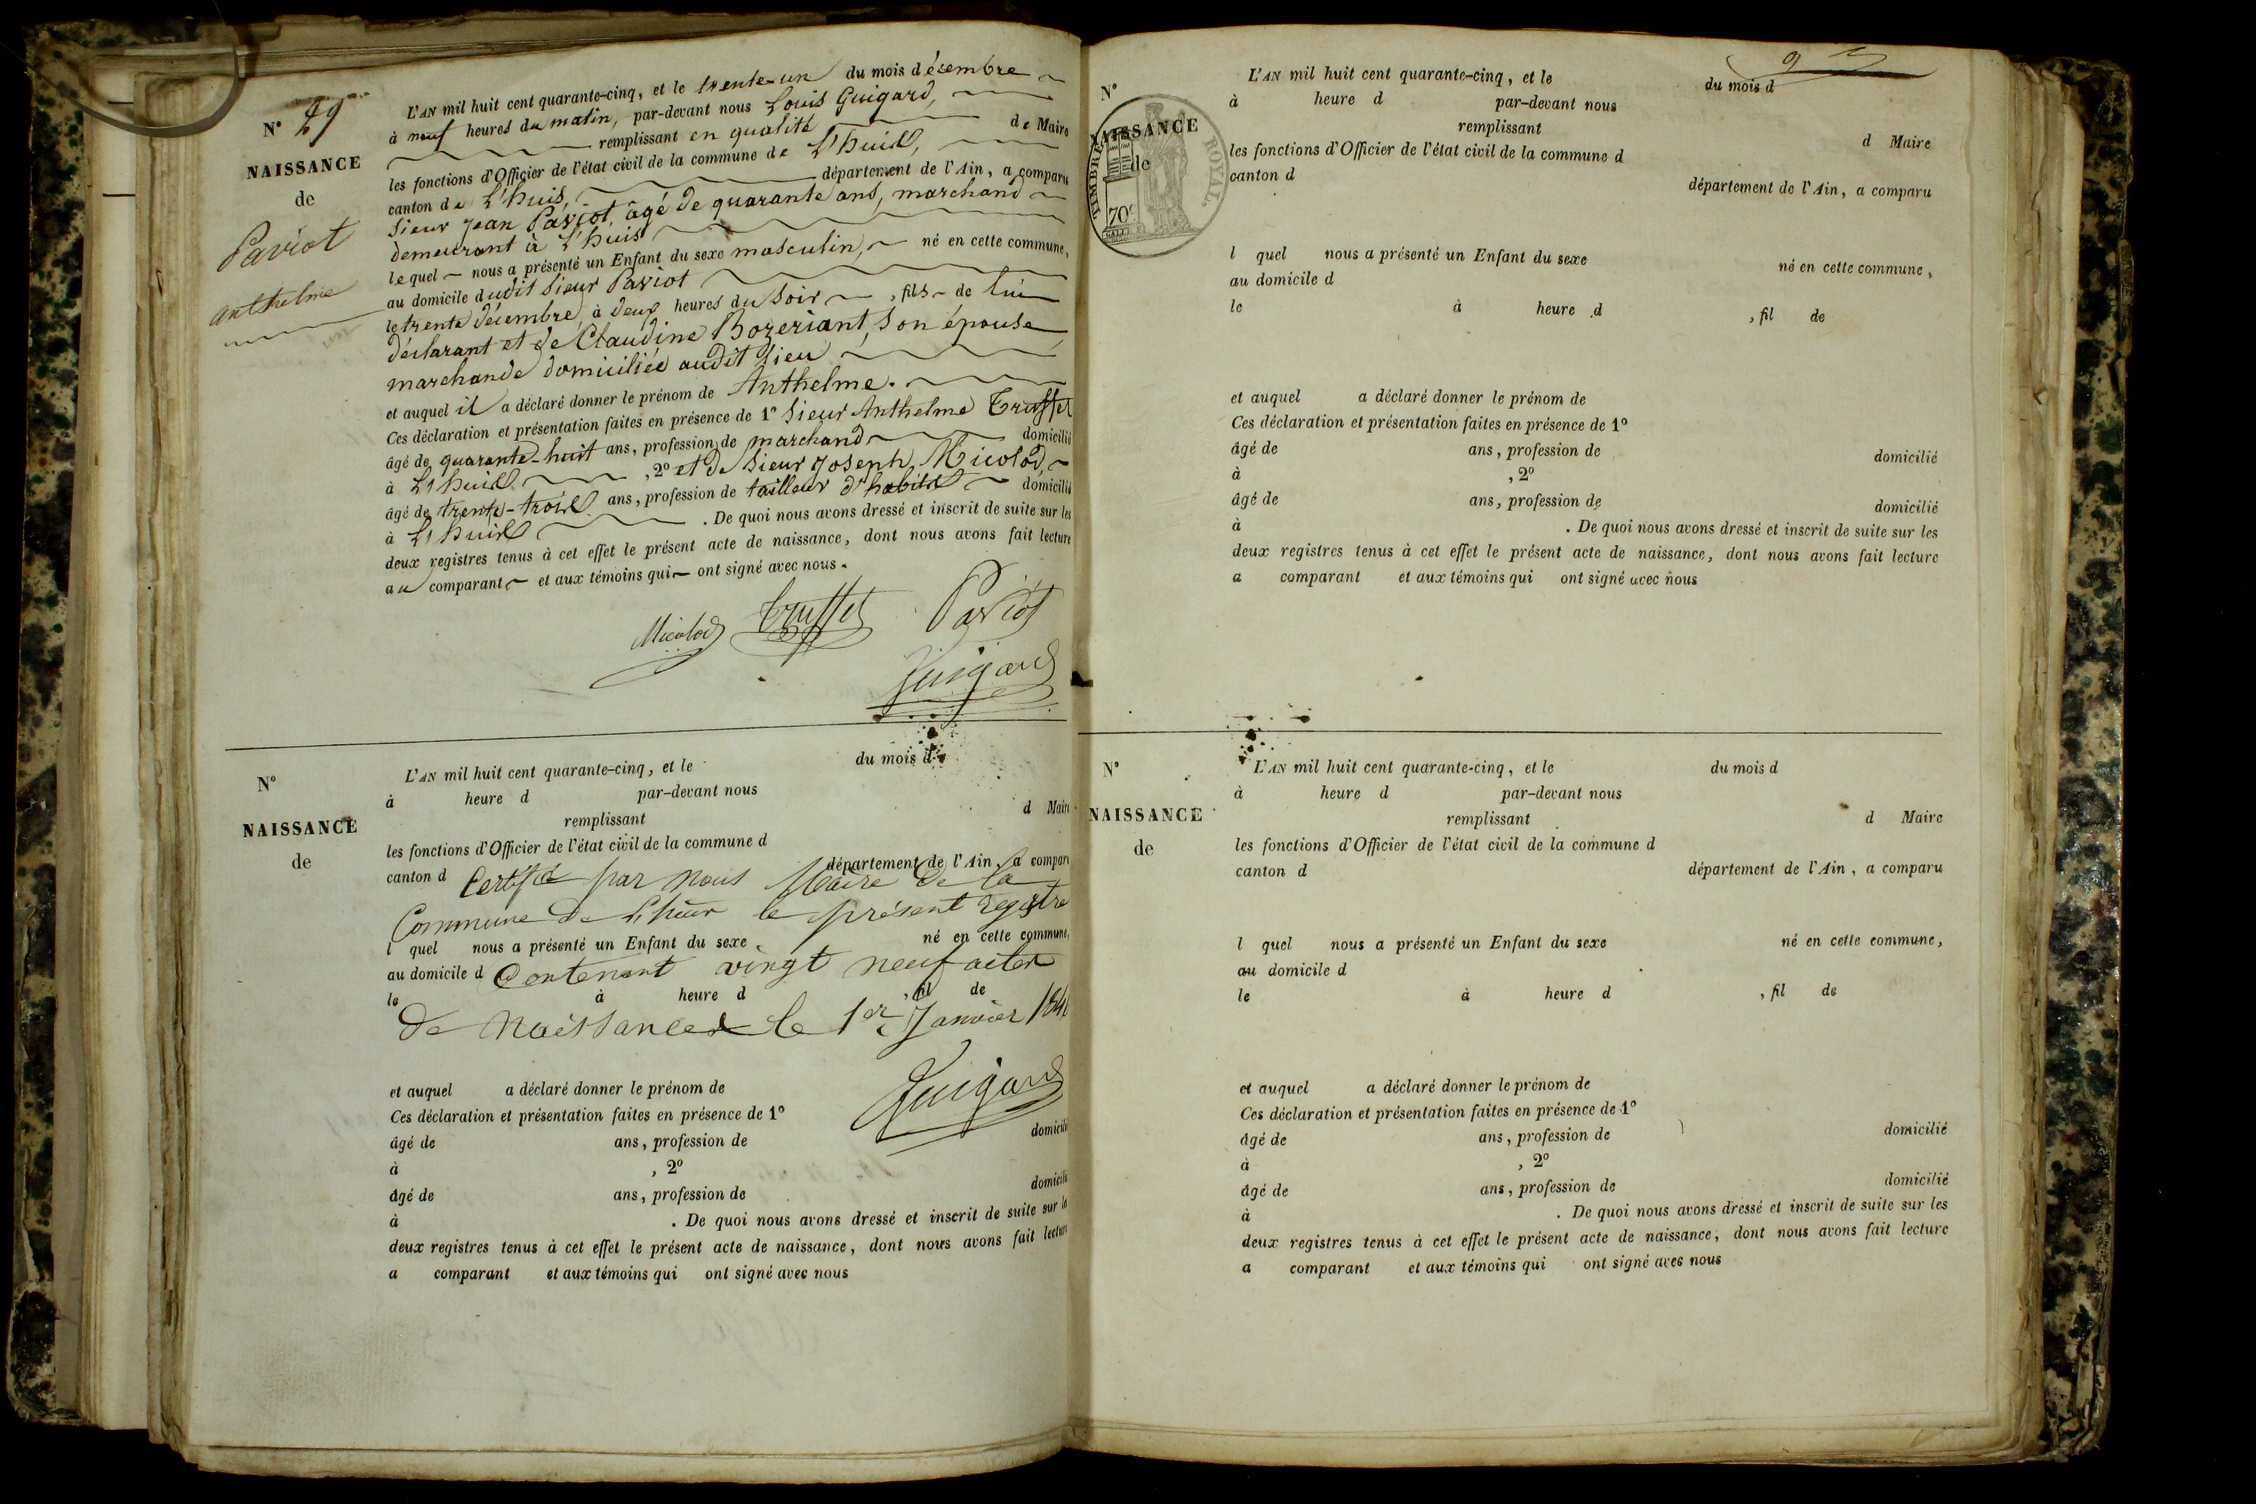 N° 29
NAISSANCE
de
Paviot
anthelme
L'AN mil huit cent quarante-cinq, et le trente-un du mois décembre
à neuf heures du matin, par-devant nous Louis Guigard,
remplissant en qualité de Maire
les fonctions d'Officier de l'état civil de la commune de L'huis,
canton de L'huis, département de l'Ain, a comparu
Sieur Jean Paviot, âgé de quarante ans, marchand
demeurant à L'huis
lequel nous a présenté un Enfant du sexe masculin, né en cette commune,
au domicile dudit Sieur Paviot
le trente décembre, à deux heures du soir, fils de lui
déclarant et de Claudine Bozeriant, son épouse
marchande domiciliée audit lieu
et auquel il a déclaré donner le prénom de Anthelme.
Ces déclaration et présentation faites en présence de 1° Sieur Anthelme Truffet
âgé de quarante-huit ans, profession de marchand domicilié
à L'huis, 2° et de Sieur Joseph Micolod,
âgé de trente-trois ans, profession de tailleur d'habits domicilié
à L'huis. De quoi nous avons dressé et inscrit de suite sur les
deux registres tenus à cet effet le présent acte de naissance, dont nous avons fait lecture
au comparant et aux témoins qui ont signé avec nous.
Micolod Truffet Paviot
Guigard
N°
NAISSANCE
de
L'AN mil huit cent quarante-cinq, et le du mois d
à heure d par-devant nous
remplissant d Maire
les fonctions d'Officier de l'état civil de la commune d
canton d département de l'Ain, a comparu
Certifié par nous Maire de la
Commune de L'huis le présent registre
l quel nous a présenté un Enfant du sexe né en cette commune,
au domicile d
Contenant vingt neuf actes
le à heure d , fil de
de Naissances le 1er Janvier 184
Guigard
et auquel a déclaré donner le prénom de
Ces déclaration et présentation faites en présence de 1°
âgé de ans, profession de domicilié
à , 2°
âgé de ans, profession de domicilié
à . De quoi nous avons dressé et inscrit de suite sur les
deux registres tenus à cet effet le présent acte de naissance, dont nous avons fait lecture
a comparant et aux témoins qui ont signé avec nous
N°
NAISSANCE
de
TIMBRE ROYAL
70c
L'AN mil huit cent quarante-cinq, et le du mois d
à heure d par-devant nous
remplissant d Maire
les fonctions d'Officier de l'état civil de la commune d
canton d département de l'Ain, a comparu
l quel nous a présenté un Enfant du sexe né en cette commune,
au domicile d
le à heure d , fil de
et auquel a déclaré donner le prénom de
Ces déclaration et présentation faites en présence de 1°
âgé de ans, profession de domicilié
à , 2°
âgé de ans, profession de domicilié
à . De quoi nous avons dressé et inscrit de suite sur les
deux registres tenus à cet effet le présent acte de naissance, dont nous avons fait lecture
a comparant et aux témoins qui ont signé avec nous
N°
NAISSANCE
de
L'AN mil huit cent quarante-cinq, et le du mois d
à heure d par-devant nous
remplissant d Maire
les fonctions d'Officier de l'état civil de la commune d
canton d département de l'Ain, a comparu
l quel nous a présenté un Enfant du sexe né en cette commune,
au domicile d
le à heure d , fil de
et auquel a déclaré donner le prénom de
Ces déclaration et présentation faites en présence de 1°
âgé de ans, profession de domicilié
à , 2°
âgé de ans, profession de domicilié
à . De quoi nous avons dressé et inscrit de suite sur les
deux registres tenus à cet effet le présent acte de naissance, dont nous avons fait lecture
a comparant et aux témoins qui ont signé avec nous